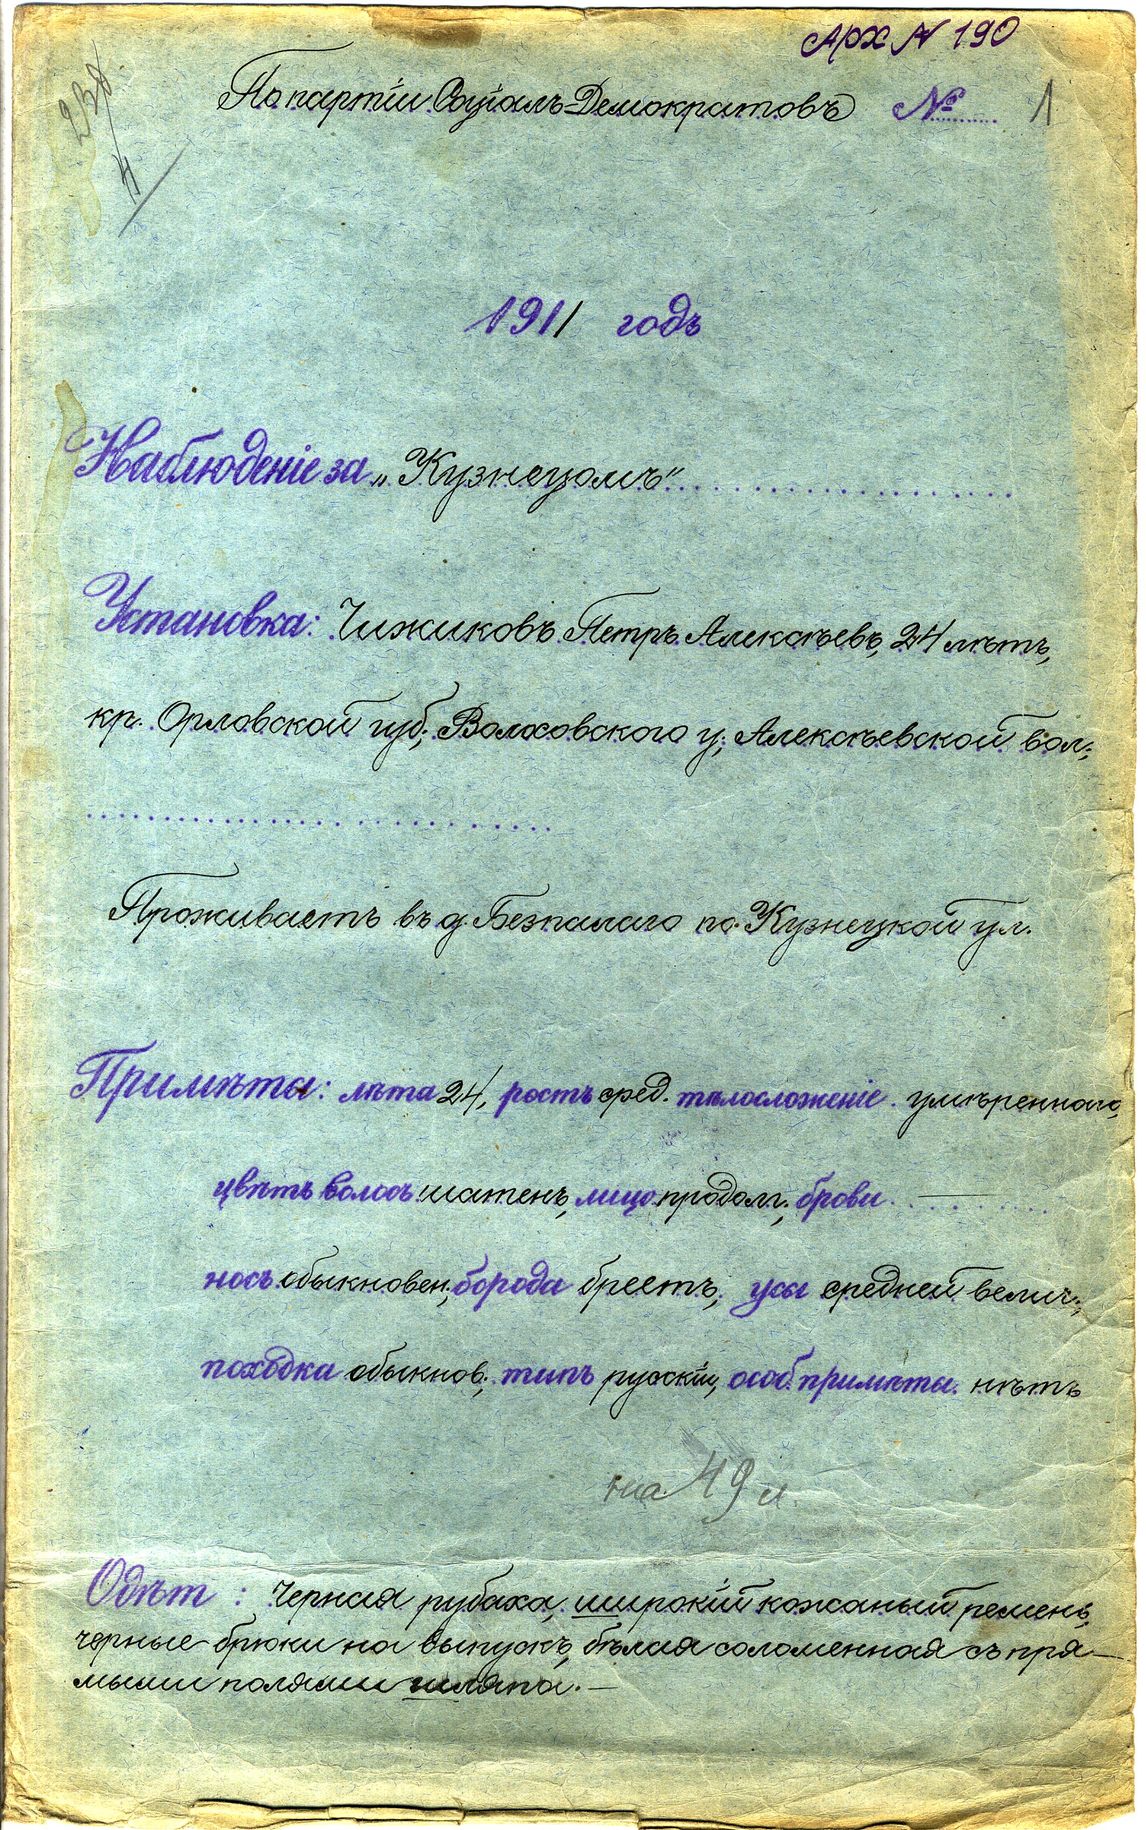 АРХ № 190
По партіи Соціалъ-Демократовъ № 1
238
4
1911 годъ
Наблюденіе за „Кузнецомъ“
Установка: Чижиковъ Петръ Алексѣевъ, 24 лѣтъ,
кр. Орловской губ; Волховского у; Алексѣевской вол;
Проживаетъ въ д. Безпалаго по Кузнецкой ул.
Примѣты: лѣта 24, ростъ сред. тѣлосложеніе умѣреннаго,
цвѣтъ волосъ шатенъ, лицо продолг; брови —
носъ обыкновен; борода брѣетъ, усы средней велич;
походка обыкнов; типъ русскій, особ. примѣты нѣтъ
на 49 л.
Одѣт: Черная рубаха, широкій кожаный ремень,
черные брюки на выпускъ, бѣлая соломенная съ пря-
мыми полями шляпа. —